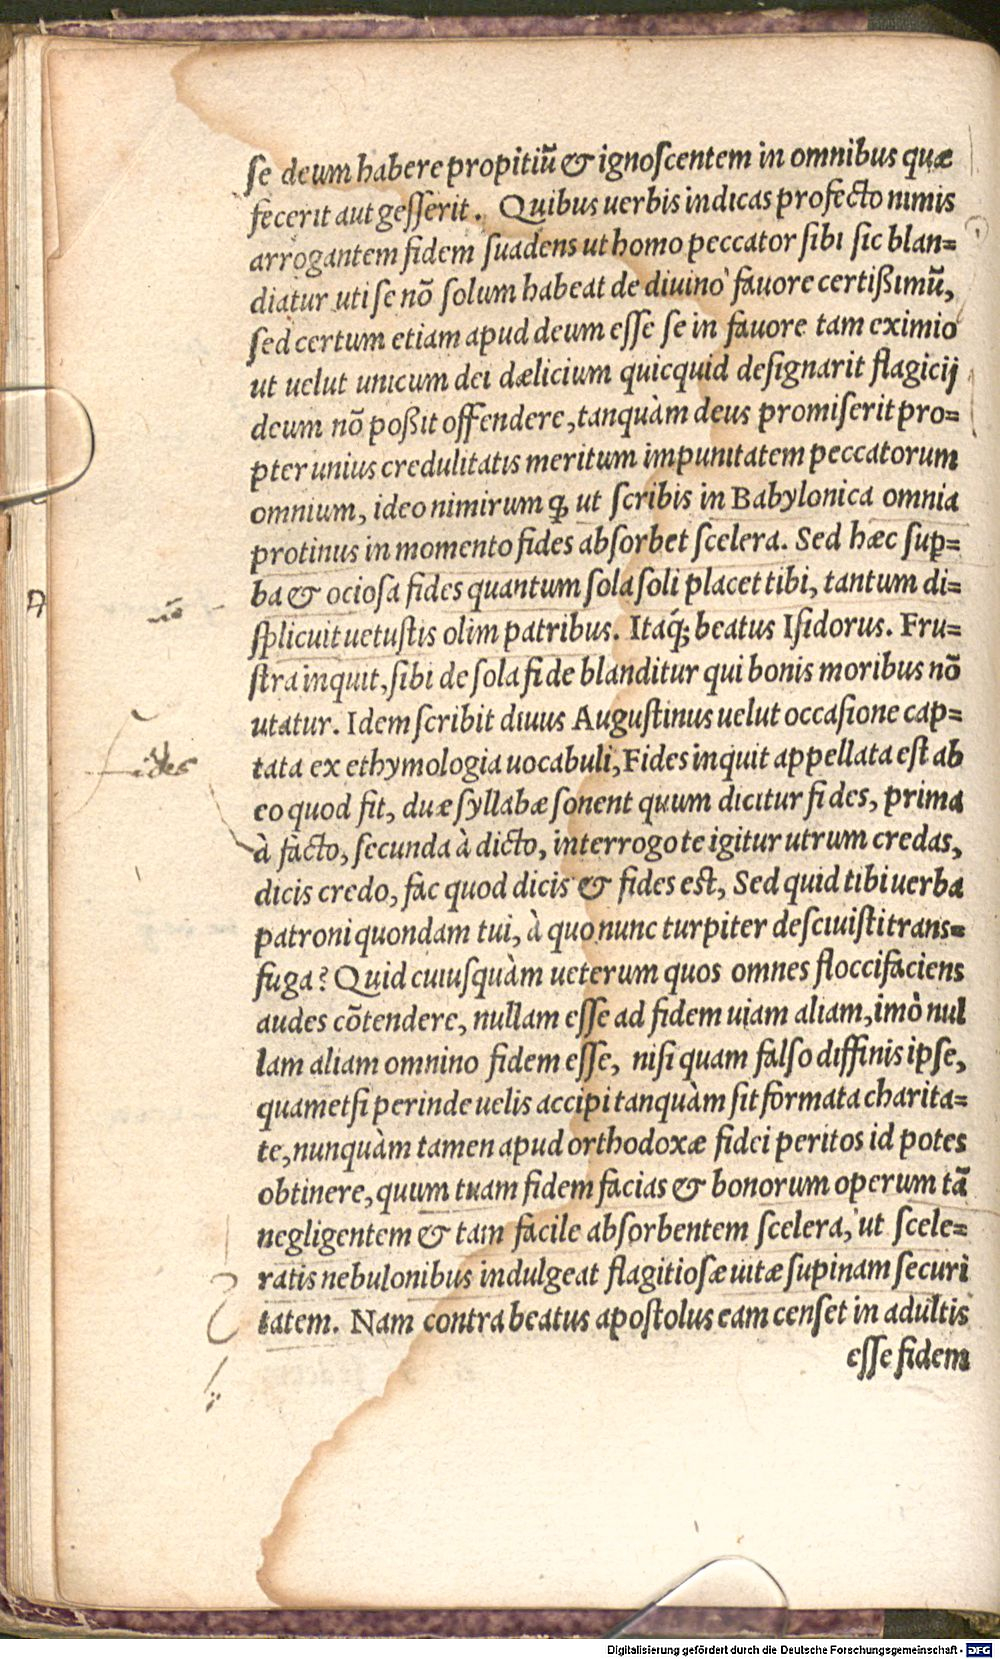 se deum habere propitiū & ignoscentem in omnibus quæ
fecerit aut gesserit. Quibus uerbis indicas profecto nimis
arrogantem fidem suadens ut homo peccator sibi sic blan=
diatur uti se nō solum habeat de diuino fauore certißimū,
sed certum etiam apud deum esse se in fauore tam eximio
ut uelut unicum dei dælicium quicquid designarit flagicij
deum nō poßit offendere, tanquàm deus promiserit pro=
pter unius credulitatis meritum impunitatem peccatorum
omnium, ideo nimirum ꝙ, ut scribis in Babylonica omnia
protinus in momento fides absorbet scelera. Sed hæc suꝑ=
ba & ociosa fides quantum sola soli placet tibi, tantum di=
splicuit uetustis olim patribus. Itaq́; beatus Isidorus. Fru=
stra inquit, sibi de sola fide blanditur qui bonis moribus nō
utatur. Idem scribit diuus Augustinus uelut occasione cap=
tata ex ethymologia uocabuli, Fides inquit appellata est ab
eo quod fit, duæ syllabæ sonent quum dicitur fides, prima
à facto, secunda à dicto, interrogo te igitur utrum credas,
dicis credo, fac quod dicis & fides est, Sed quid tibi uerba
patroni quondam tui, à quo nunc turpiter desciuisti trans=
fuga? Quid cuiusquàm ueterum quos omnes floccifaciens
audes cōtendere, nullam esse ad fidem uiam aliam, imò nul
lam aliam omnino fidem esse, nisi quam falso diffinis ipse,
quametsi perinde uelis accipi tanquàm sit formata charita=
te, nunquàm tamen apud orthodoxæ fidei peritos id potes
obtinere, quum tuam fidem facias & bonorum operum tā
negligentem & tam facile absorbentem scelera, ut scele=
ratis nebulonibus indulgeat flagitiosæ uitæ supinam securi
tatem. Nam contra beatus apostolus eam censet in adultis
esse fidem
fides
Digitalisierung gefördert durch die Deutsche Forschungsgemeinschaft - DFG